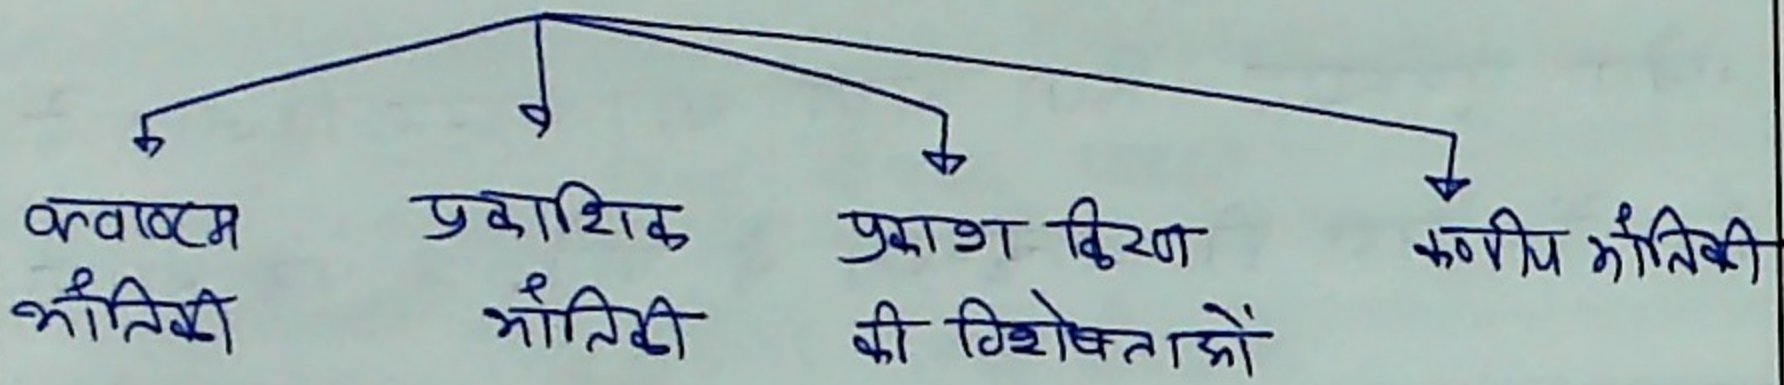 क्वाण्टम
भौतिकी
प्रकाशिक
भौतिकी
प्रकाश किरण
की विशेषताओं
कणीय भौतिकी